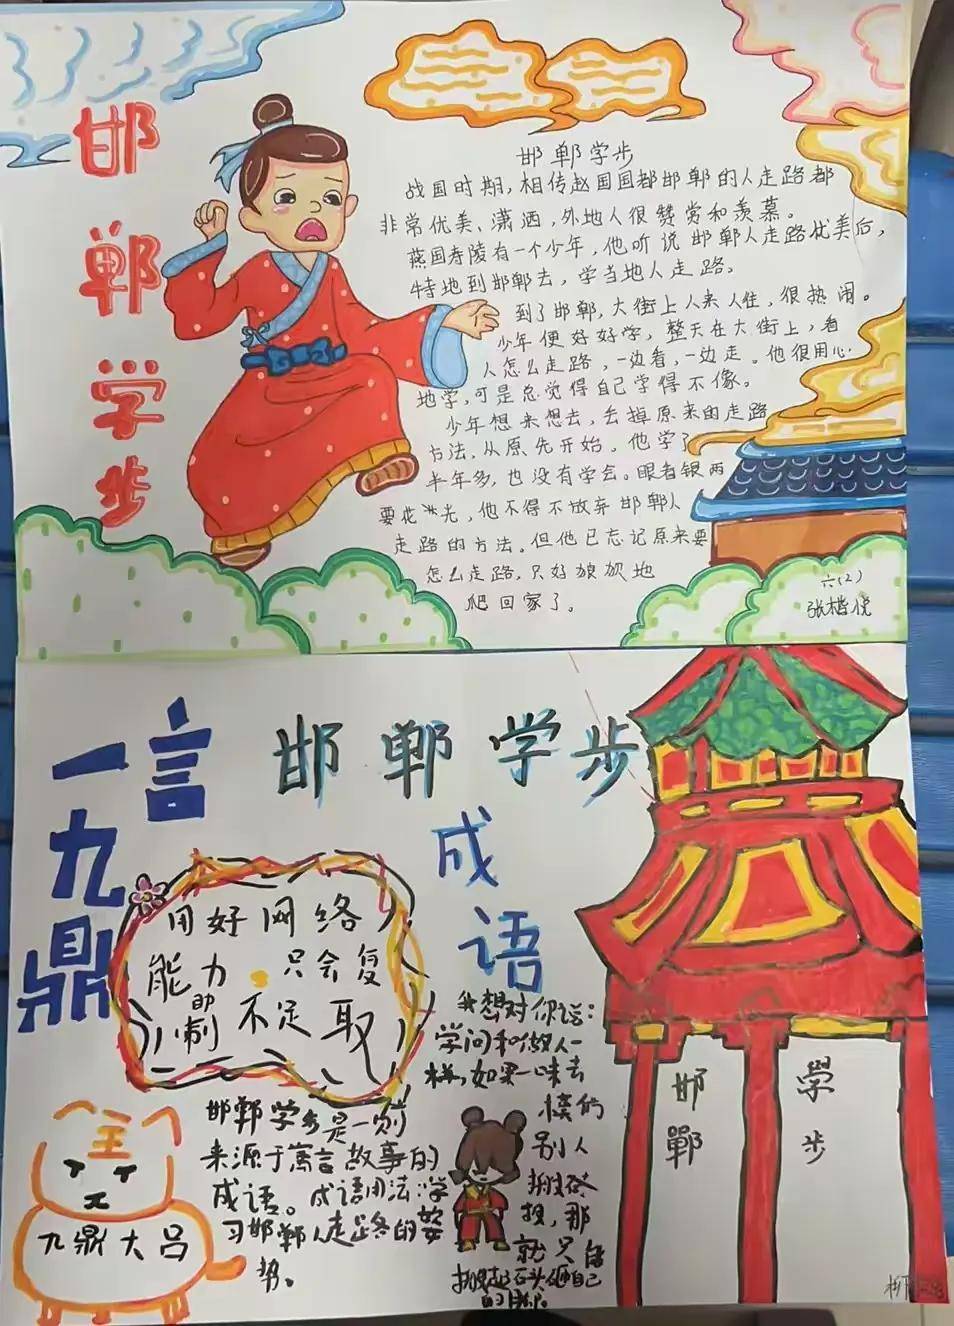 邯
郸
学
步
邯郸学步
战国时期,相传赵国国都邯郸的人走路都
非常优美、潇洒,外地人很赞赏和羡慕。
燕国寿陵有一个少年,他听说邯郸人走路优美后,
特地到邯郸去,学当地人走路。
到了邯郸,大街上人来人往,很热闹。
少年便好好学,整天在大街上,看
人怎么走路,一边看,一边走。他很用心
地学,可是总觉得自己学得不像。
少年想来想去,丢掉原来的走路
方法,从原先开始。他学了
半年多,也没有学会。眼看银两
要花光,他不得不放弃邯郸人
走路的方法。但他已忘记原来要
怎么走路,只好狼狈地
爬回家了。
六(2)
张楷悦
一言
九
鼎
邯郸学步
成
语
用好网络
能力 只会复
制 不足取
我想对你说:
学问和做人一
样,如果一味去
模仿
别人
那
就只
搬起石头砸自己
的脚。
邯郸学步是一则
来源于寓言故事的
成语。成语用法:学
习邯郸人走路的姿
势。
王
九鼎大吕
邯
鄲
學
步